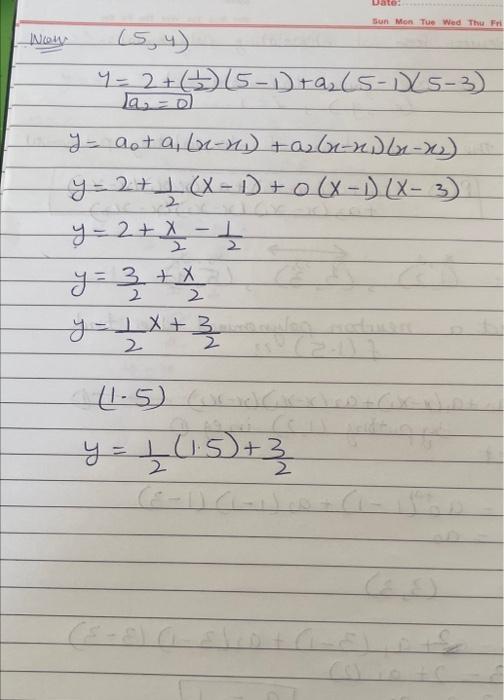 Date:
Sun Mon Tue Wed Thu Fri
Now (5,4)
4 = 2 + (1/2)(5-1) + a₂(5-1)(5-3)
a₂ = 0
y = a₀ + a₁(x-x₁) + a₂(x-x₁)(x-x₂)
y = 2 + 1/2 (x-1) + 0(x-1)(x-3)
y = 2 + x/2 - 1/2
y = 3/2 + x/2
y = 1/2 x + 3/2
(1.5)
y = 1/2 (1.5) + 3/2